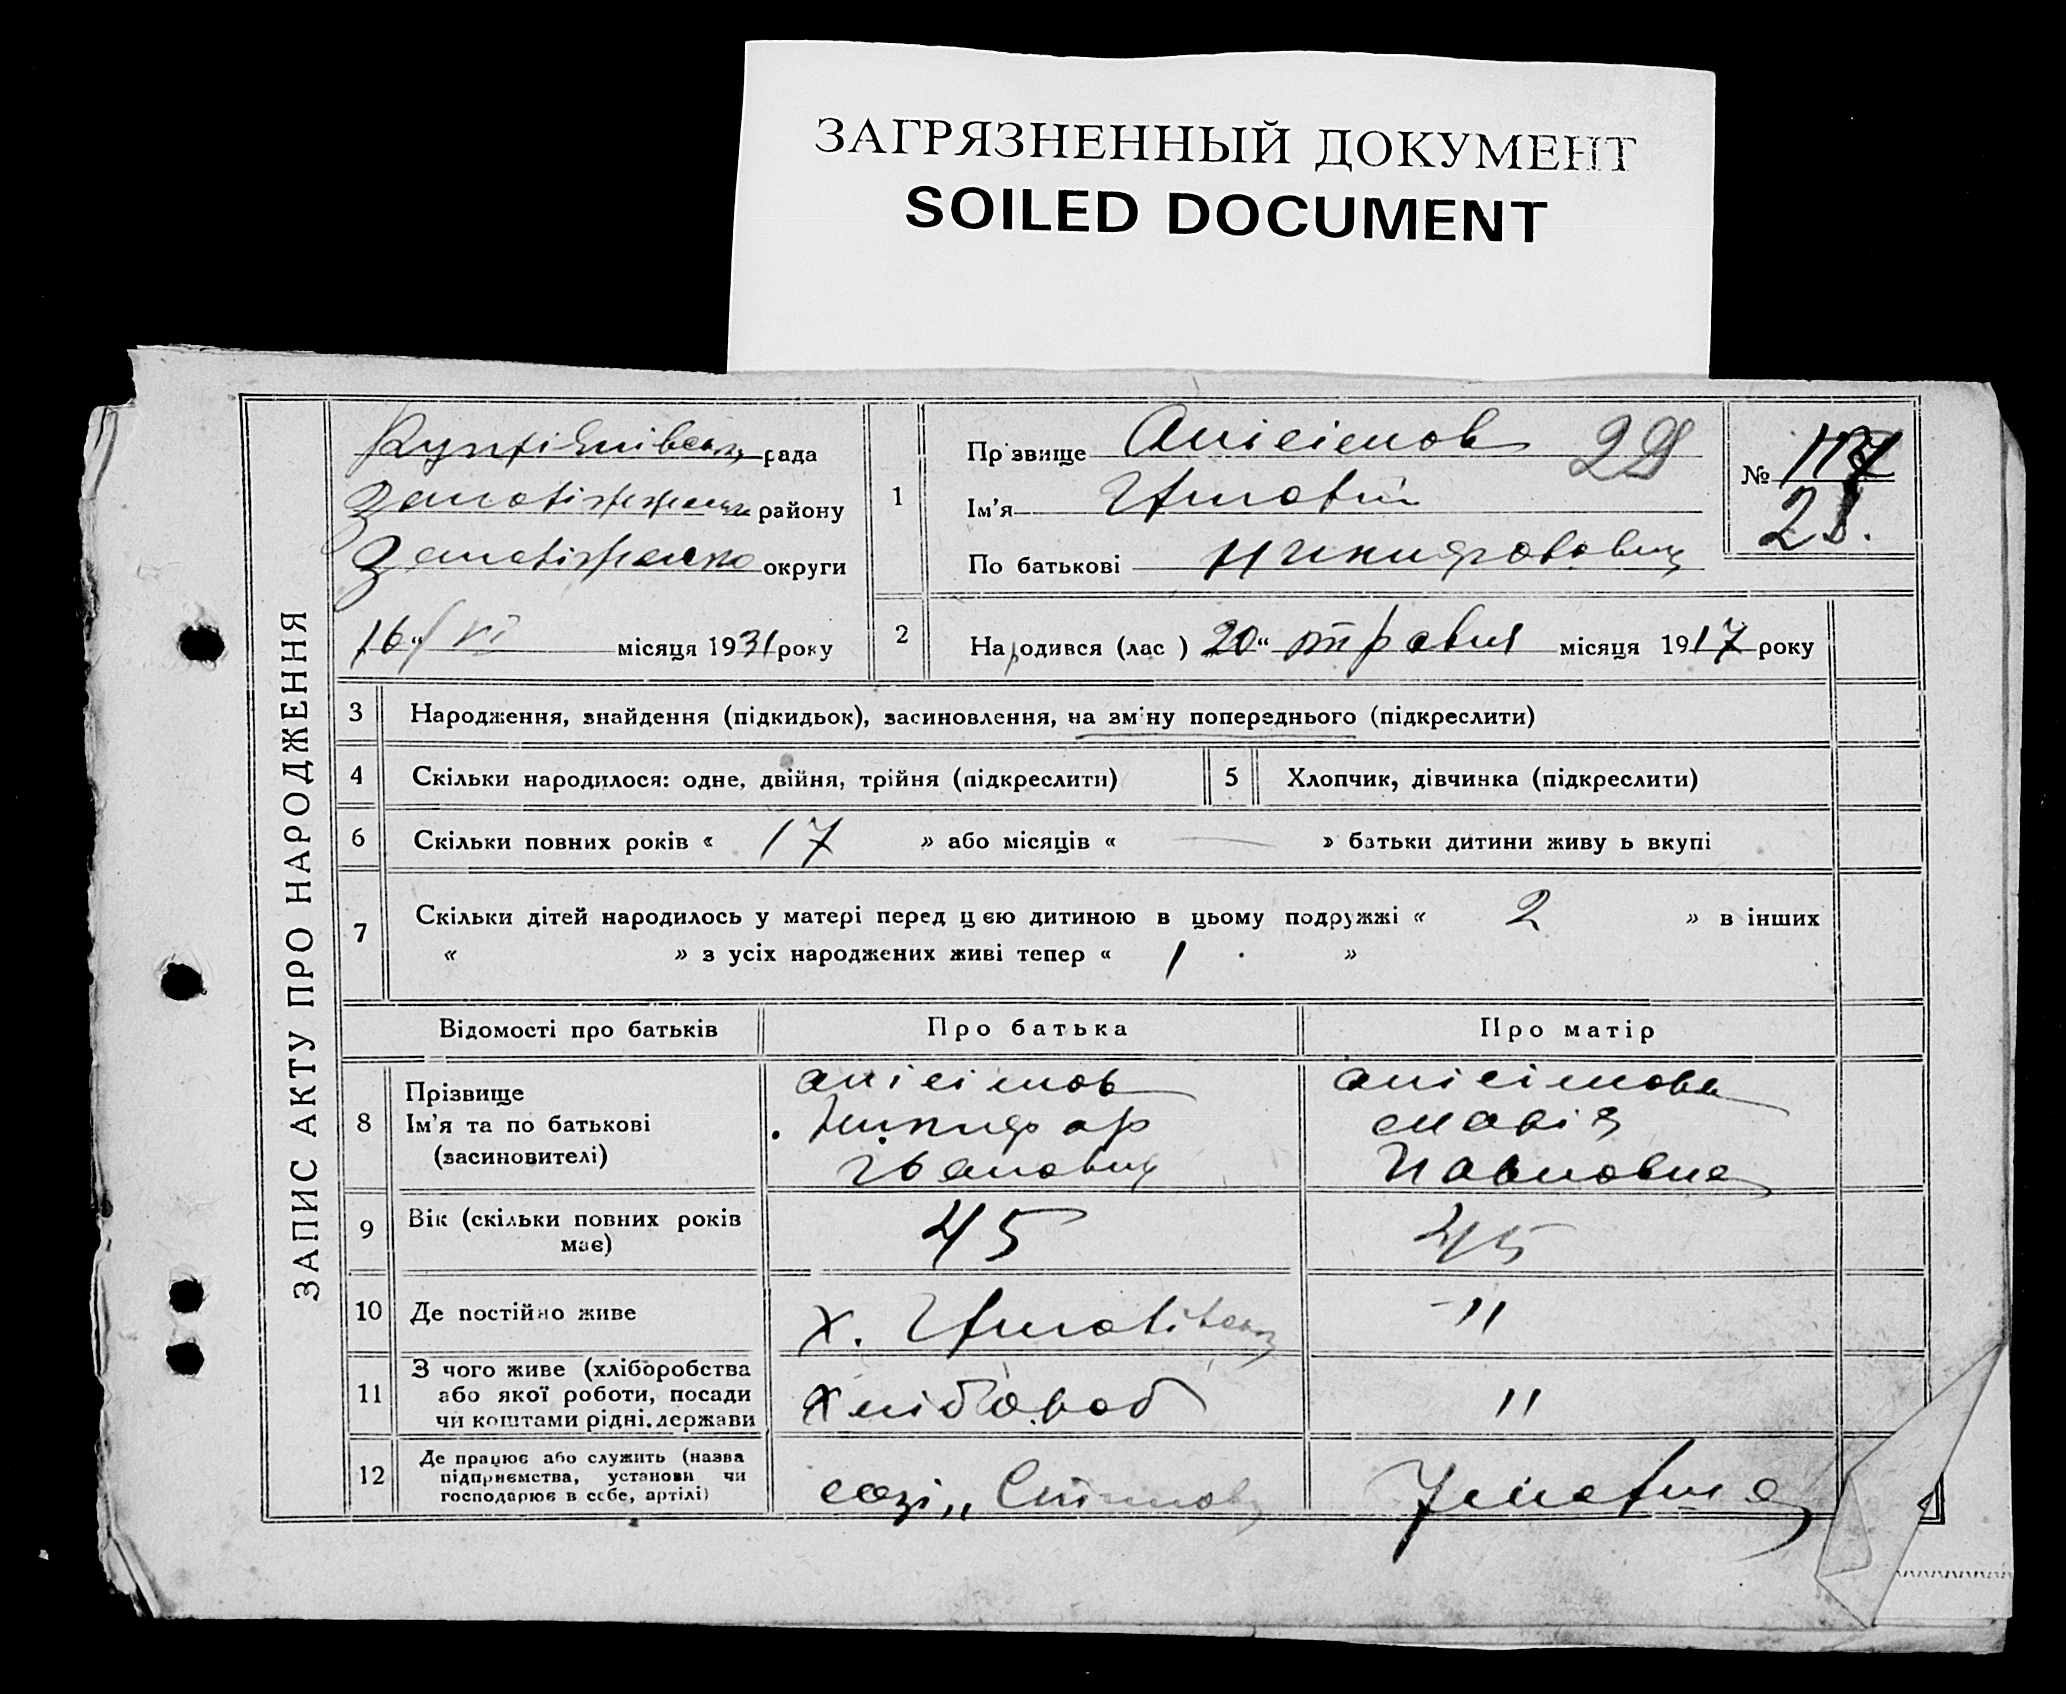 ЗАГРЯЗНЕННЫЙ ДОКУМЕНТ
SOILED DOCUMENT
ЗАПИС АКТУ ПРО НАРОДЖЕННЯ
рада
району
округи
16 VI місяця 1931 року
1
Прізвище Анісімов 28
Ім'я
По батькові Никифорович
№
28.
2
Народився (лас ) 20 “ травня місяця 1917 року
3 Народження, знайдення (підкидьок), засиновлення, на зміну попереднього (підкреслити)
4 Скільки народилося: одне, двійня, трійня (підкреслити) 5 Хлопчик, дівчинка (підкреслити)
6 Скільки повних років « 17 » або місяців « — » батьки дитини живу ь вкупі
7 Скільки дітей народилось у матері перед цєю дитиною в цьому подружжі « 2 » в інших
« » з усіх народжених живі тепер « 1 »
Відомості про батьків Про батька Про матір
8 Прізвище Анісімов Анісімова
Ім'я та по батькові Никифор Марія
(засиновителі) Іванович Павловна
9 Вік (скільки повних років має) 45 45
10 Де постійно живе х. -"
11 З чого живе (хліборобства
або якої роботи, посади хлібороб "
чи коштами рідні. держави
12 Де працює або служить (назва
підприємства, установи чи
господарює в себе, артілі)